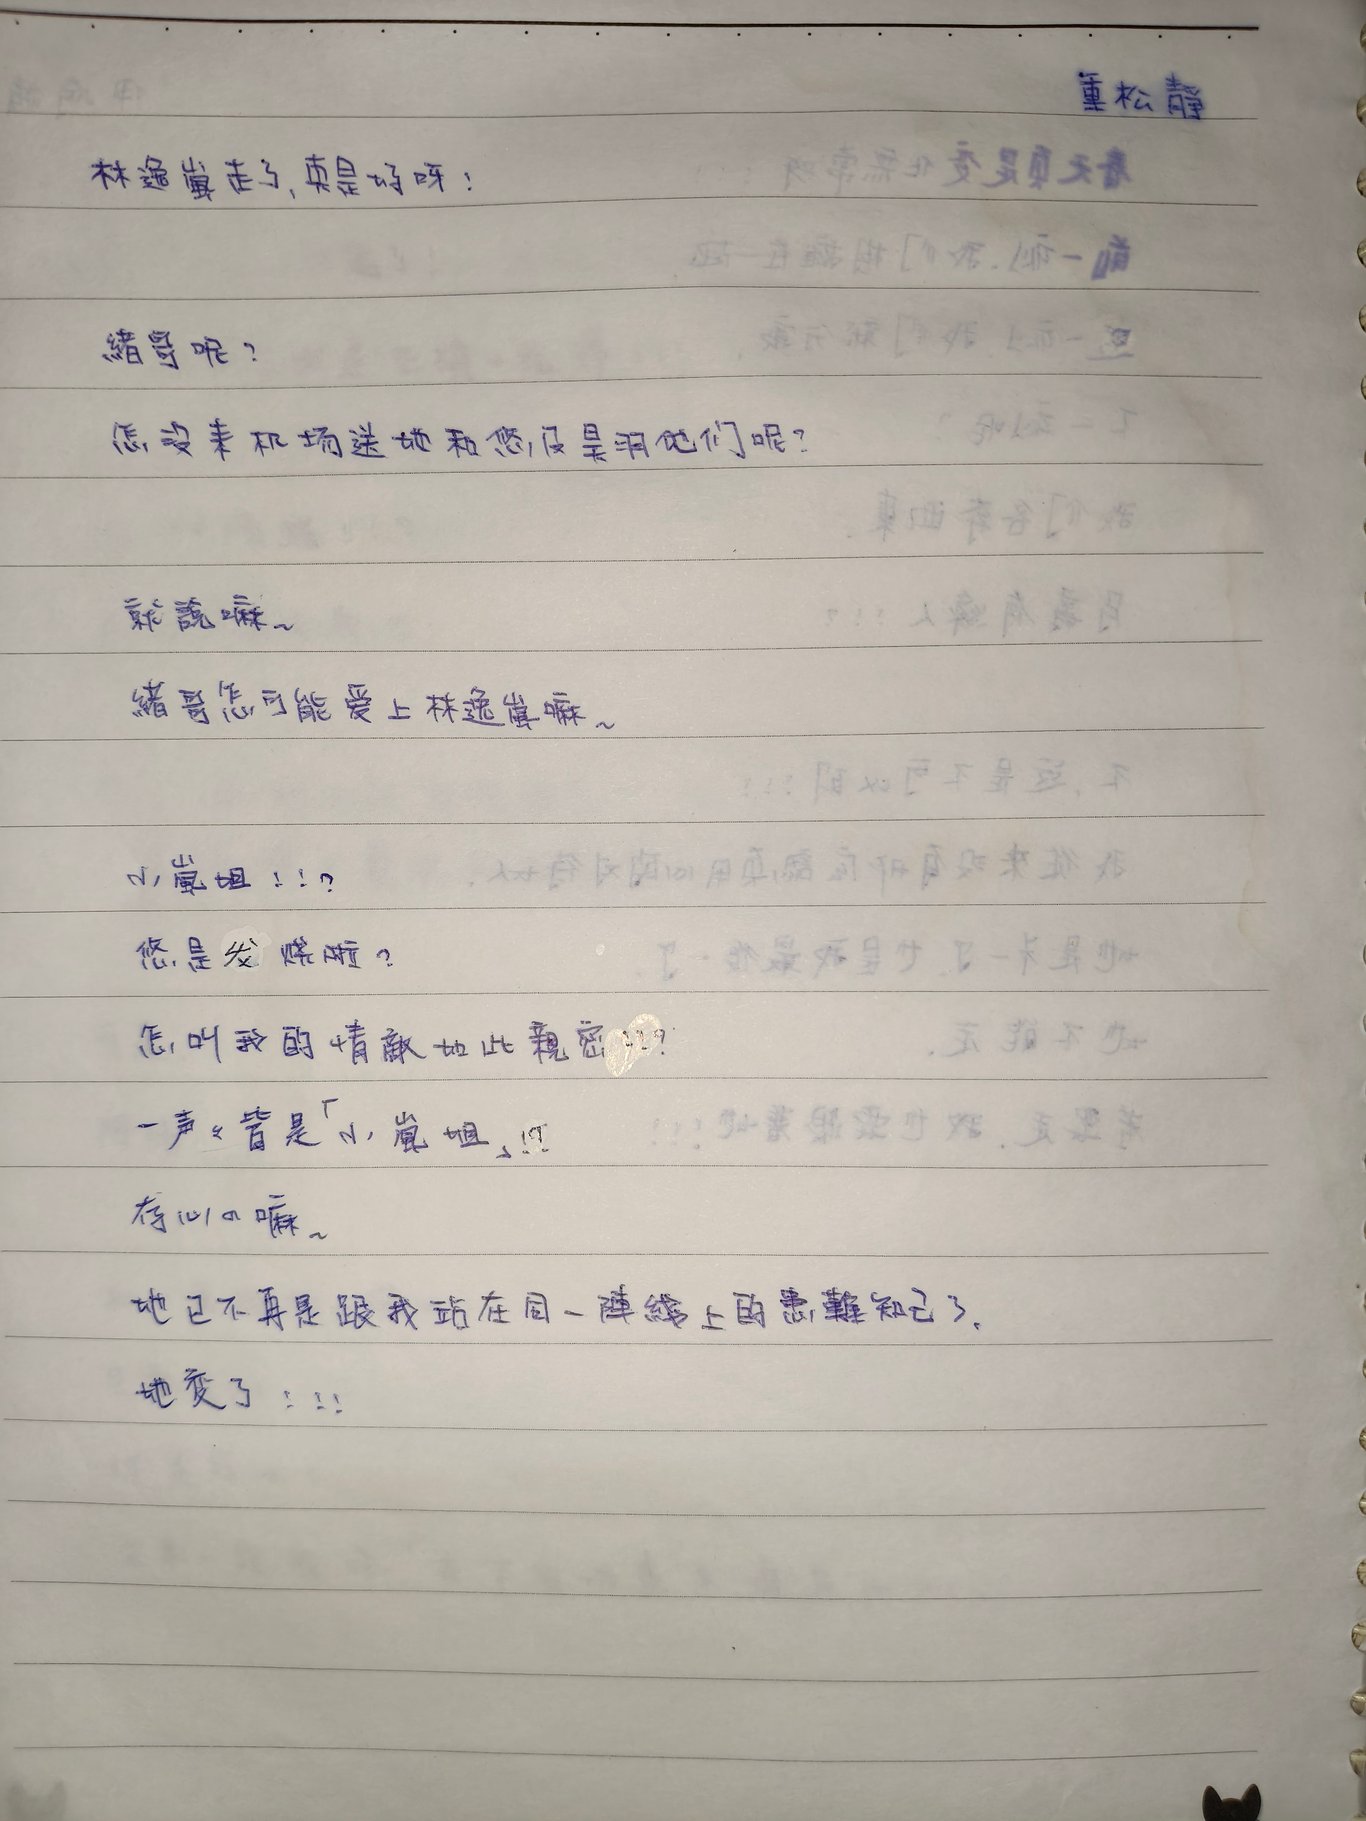 重松靜
林逸嵐走了,真是好呀!
緒哥呢?
怎没来机场送她和悠,及昊洞他们呢?
就說嘛~
緒哥怎可能爱上林逸嵐嘛~
小嵐姐!!?
悠是发烧啦?
怎叫我的情敵如此親密!!?
一声々皆是「小嵐姐」!?
存心の嘛~
她已不再是跟我站在同一陣綫上的患難知己了。
她变了!!!